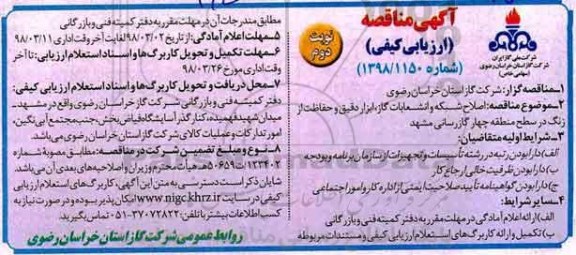 شرکت ملی گاز ایران
شرکت گاز استان خراسان رضوی
(سهامی خاص)
آگهی مناقصه
(ارزیابی کیفی)
(شماره ۱۳۹۸/۱۱۵۰)
نوبت
دوم
۱-مناقصه گزار: شرکت گاز استان خراسان رضوی
۲-موضوع مناقصه: اصلاح شبکه و انشعابات گاز، ابزار دقیق و حفاظت از
زنگ در سطح منطقه چهار گازرسانی مشهد
۳-شرایط اولیه متقاضیان:
الف) دارا بودن رتبه در رشته تأسیسات و تجهیزات از سازمان برنامه و بودجه
ب) دارا بودن ظرفیت خالی ارجاع کار
ج) دارا بودن گواهینامه تأیید صلاحیت ایمنی از اداره کار و امور اجتماعی
۴-سایر شرایط:
الف) ارائه اعلام آمادگی در مهلت مقرر به دفتر کمیته فنی و بازرگانی
ب) تکمیل و ارائه کاربرگ های استعلام ارزیابی کیفی و مستندات مربوطه
مطابق مندرجات آن در مهلت مقرر به دفتر کمیته فنی و بازرگانی
۵-مهلت اعلام آمادگی: از تاریخ ۹۸/۰۳/۰۲ لغایت آخر وقت اداری ۹۸/۰۳/۱۱
۶-مهلت تکمیل و تحویل کاربرگ ها و اسناد استعلام ارزیابی: تا آخر
وقت اداری مورخ ۹۸/۰۳/۲۶
۷-محل دریافت و تحویل کاربرگ ها و اسناد استعلام ارزیابی کیفی:
دفتر کمیته فنی و بازرگانی شرکت گاز استان خراسان رضوی واقع در مشهد-
میدان شهید فهمیده، کنار گذر آسایشگاه فیاض بخش، جنب مجتمع آبی نگین،
امور تدارکات و عملیات کالای شرکت گاز استان خراسان رضوی می باشد.
۸-نوع و مبلغ تضمین شرکت در مناقصه: مطابق مصوبه شماره
۱۲۳۴۰۲/ت۵۰۶۵۹ه هیأت محترم وزیران و اصلاحیه های بعدی آن می باشد.
شایان ذکر است دسترسی به متن این آگهی، کاربرگ های استعلام ارزیابی
کیفی در سایت www.nigc.khrz.ir امکان پذیر بوده و در صورت نیاز به
کسب اطلاعات بیشتر با تلفن: ۳۷۰۷۲۸۲۲-۰۵۱ تماس بگیرید.
روابط عمومی شرکت گاز استان خراسان رضوی